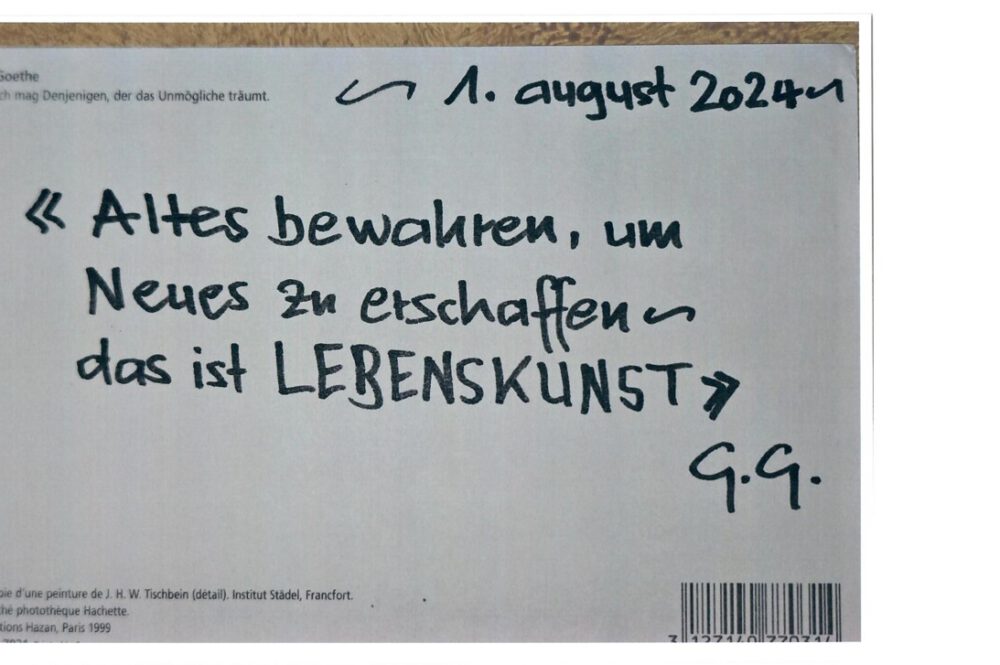 Goethe
ch mag Denjenigen, der das Unmögliche träumt.
~ 1. august 2024~
« Altes bewahren, um
Neues zu erschaffen ~
das ist LEBENSKUNST »
G.G.
pie d'une peinture de J. H. W. Tischbein (détail). Institut Städel, Francfort.
thé photothèque Hachette.
tions Hazan, Paris 1999
3 127140 770314